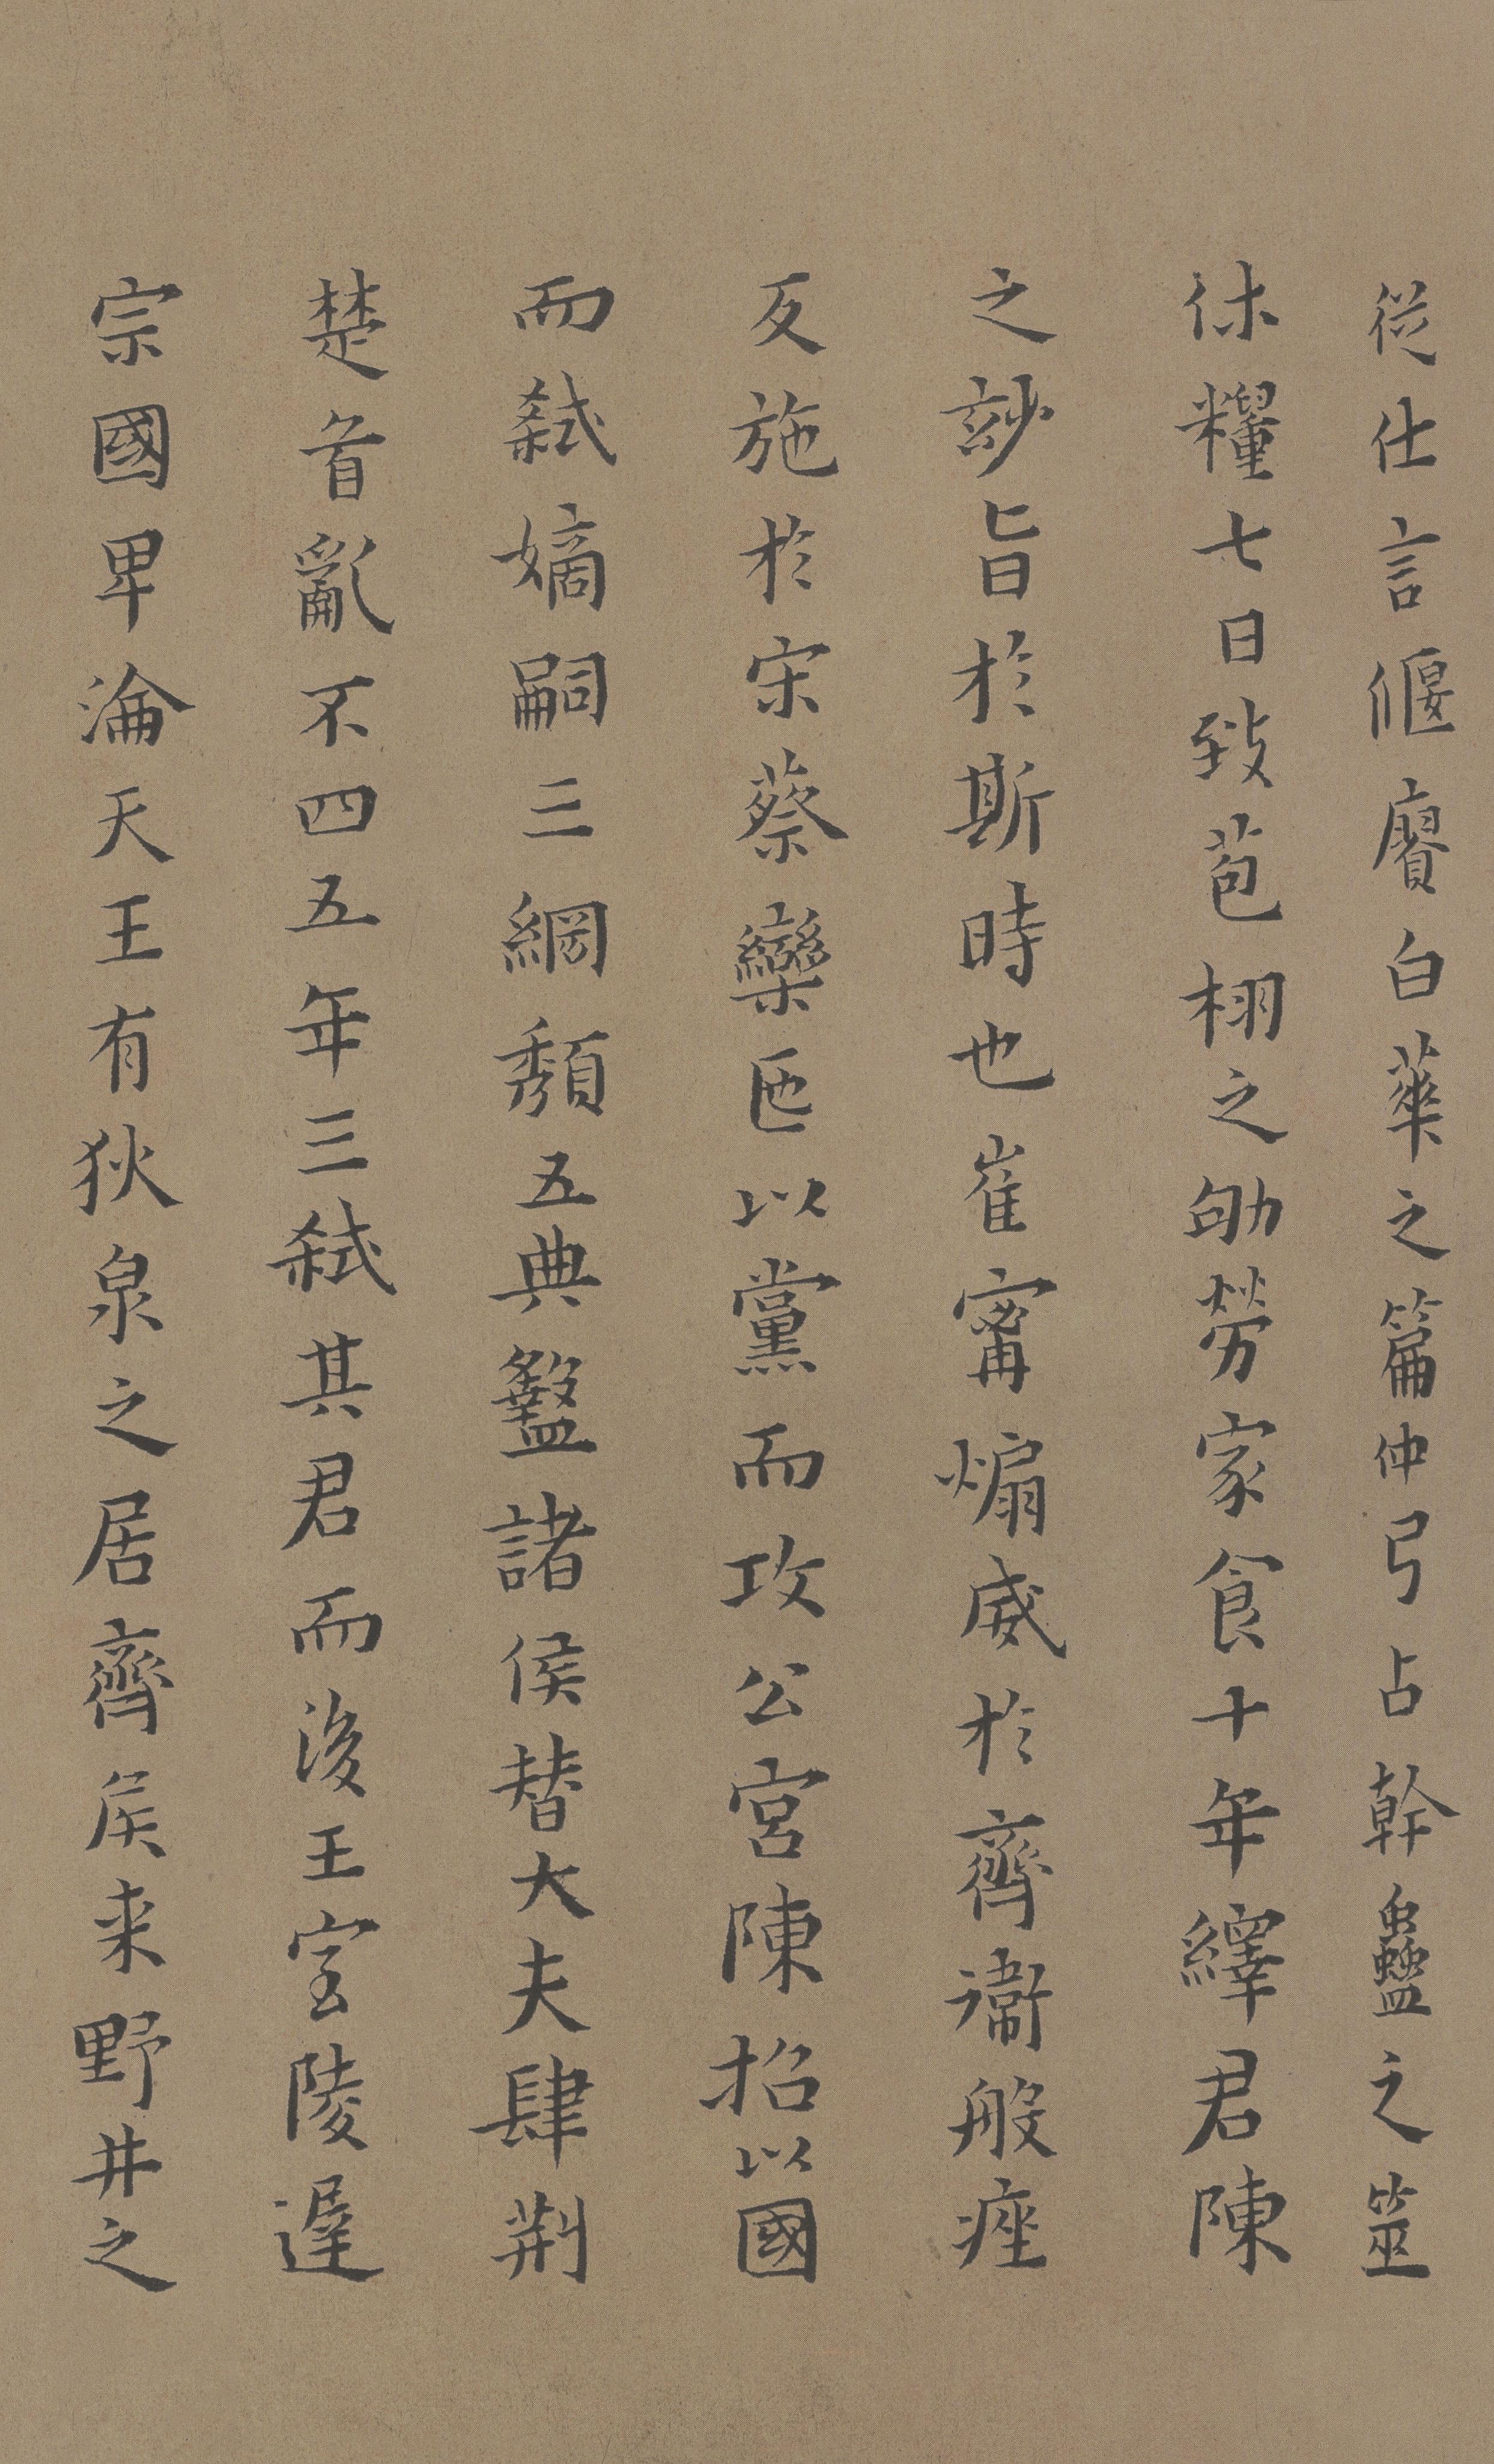 從仕言偃賡白華之篇仲弓占幹蠱之筮
休糧七日致苞栩之劬勞家食十年繹君陳
之妙旨於斯時也崔甯煽威於齊衛般痤
反施於宋蔡欒匜以黨而攻公宮陳招以國
而弒嫡嗣三網頽五典盭諸侯替大夫肆荆
楚首亂不四五年三弒其君而後王室陵遲
宗國卑淪天王有狄泉之居齊侯来野井之